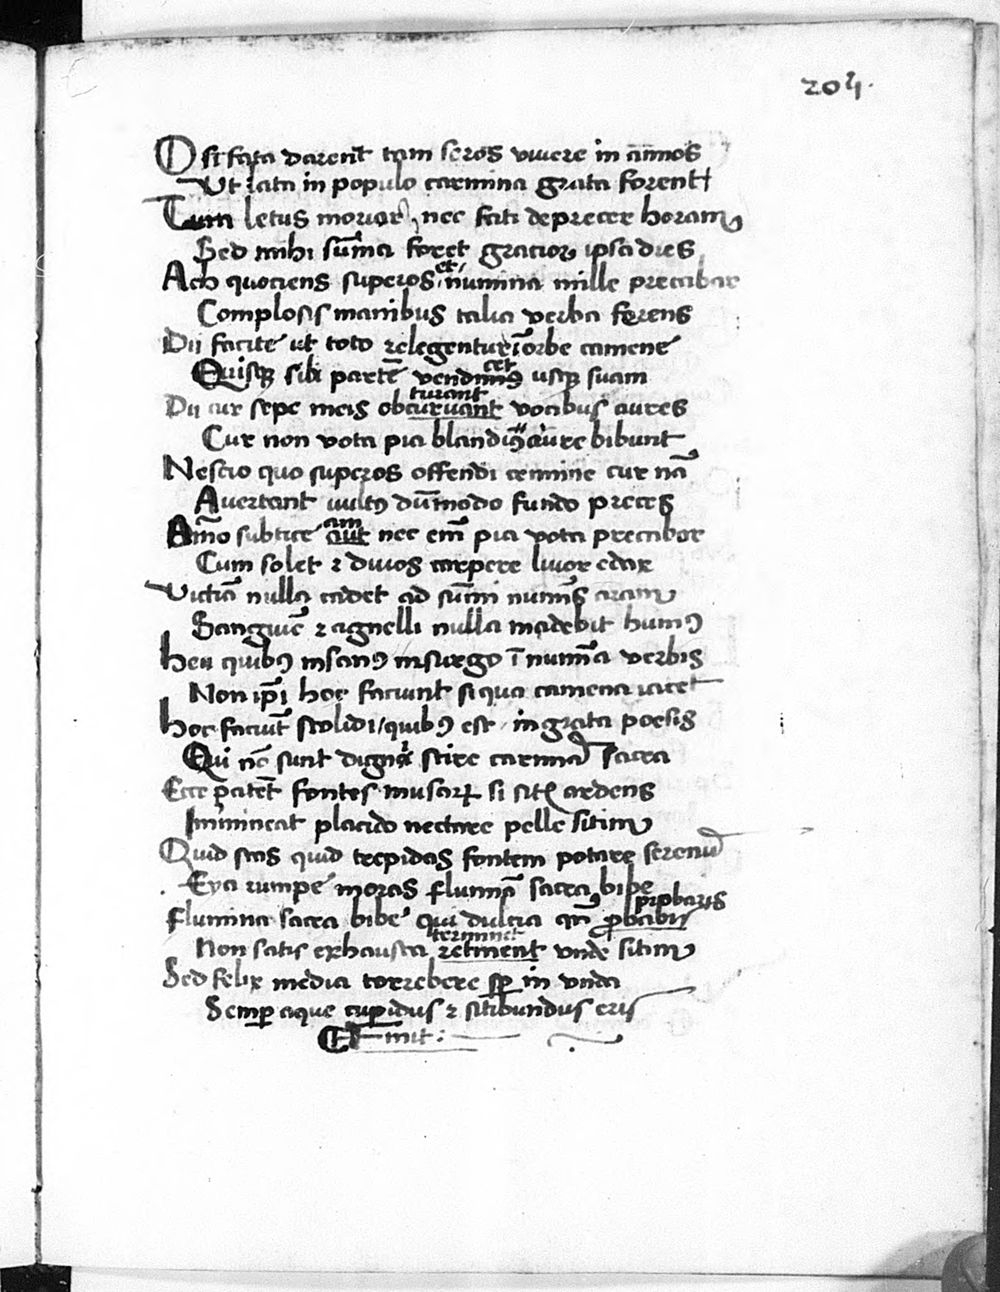 204.
O si fata darent tam seros viuere in annos
Ut lata in populo carmina grata forent
Tum letus moriar, nec fati deprecer horam
Sed mihi sūma foret gracior ipsa dies
Ach quociens superos et numina mille precabar
Complosis manibus talia verba ferens
Dii facite ut toto relegentur ī orbe camene
Quisqꝫ sibi partē vendicet usqꝫ suam
Dii cur sepe meis obcurvant turant vocibus aures
Cur non vota pia blandiꝰ aure bibunt
Nescio quo superos offendi crimine cur nā
Auertant vultꝰ dūmodo fundo preces
Aṁo subticeam aut nec em̄ pia vota precabor
Cum solet ⁊ diuos carpere liuor edax
Victīa nulla cadet ad sūmi numīs aram
Sanguīe ⁊ agnelli nulla madebit humꝰ
heu quibꝰ insanꝰ insurgo ī numīa verbis
Non ip̄i hoc faciunt si qua camena iacet
hoc faciūt stolidi / quibꝰ est ingrata poesis
Qui nō sunt digni scire carmina sacra
Ecce patēt fontes musarꝝ si sitis ardens
Immineat placido nectare pelle sitim
Quid stas quid trepidas fontem potare serenū
Eya rumpe moras flumīa sacra bibe
flumina sacra bibe qui dulcia ꝓbabis probaris
Non satis exhausta retinent terminet unde sitim
Sed felix media torrebere sꝑ in unda
Semꝑ aque cupidus ⁊ sitibundus eris
Finit :